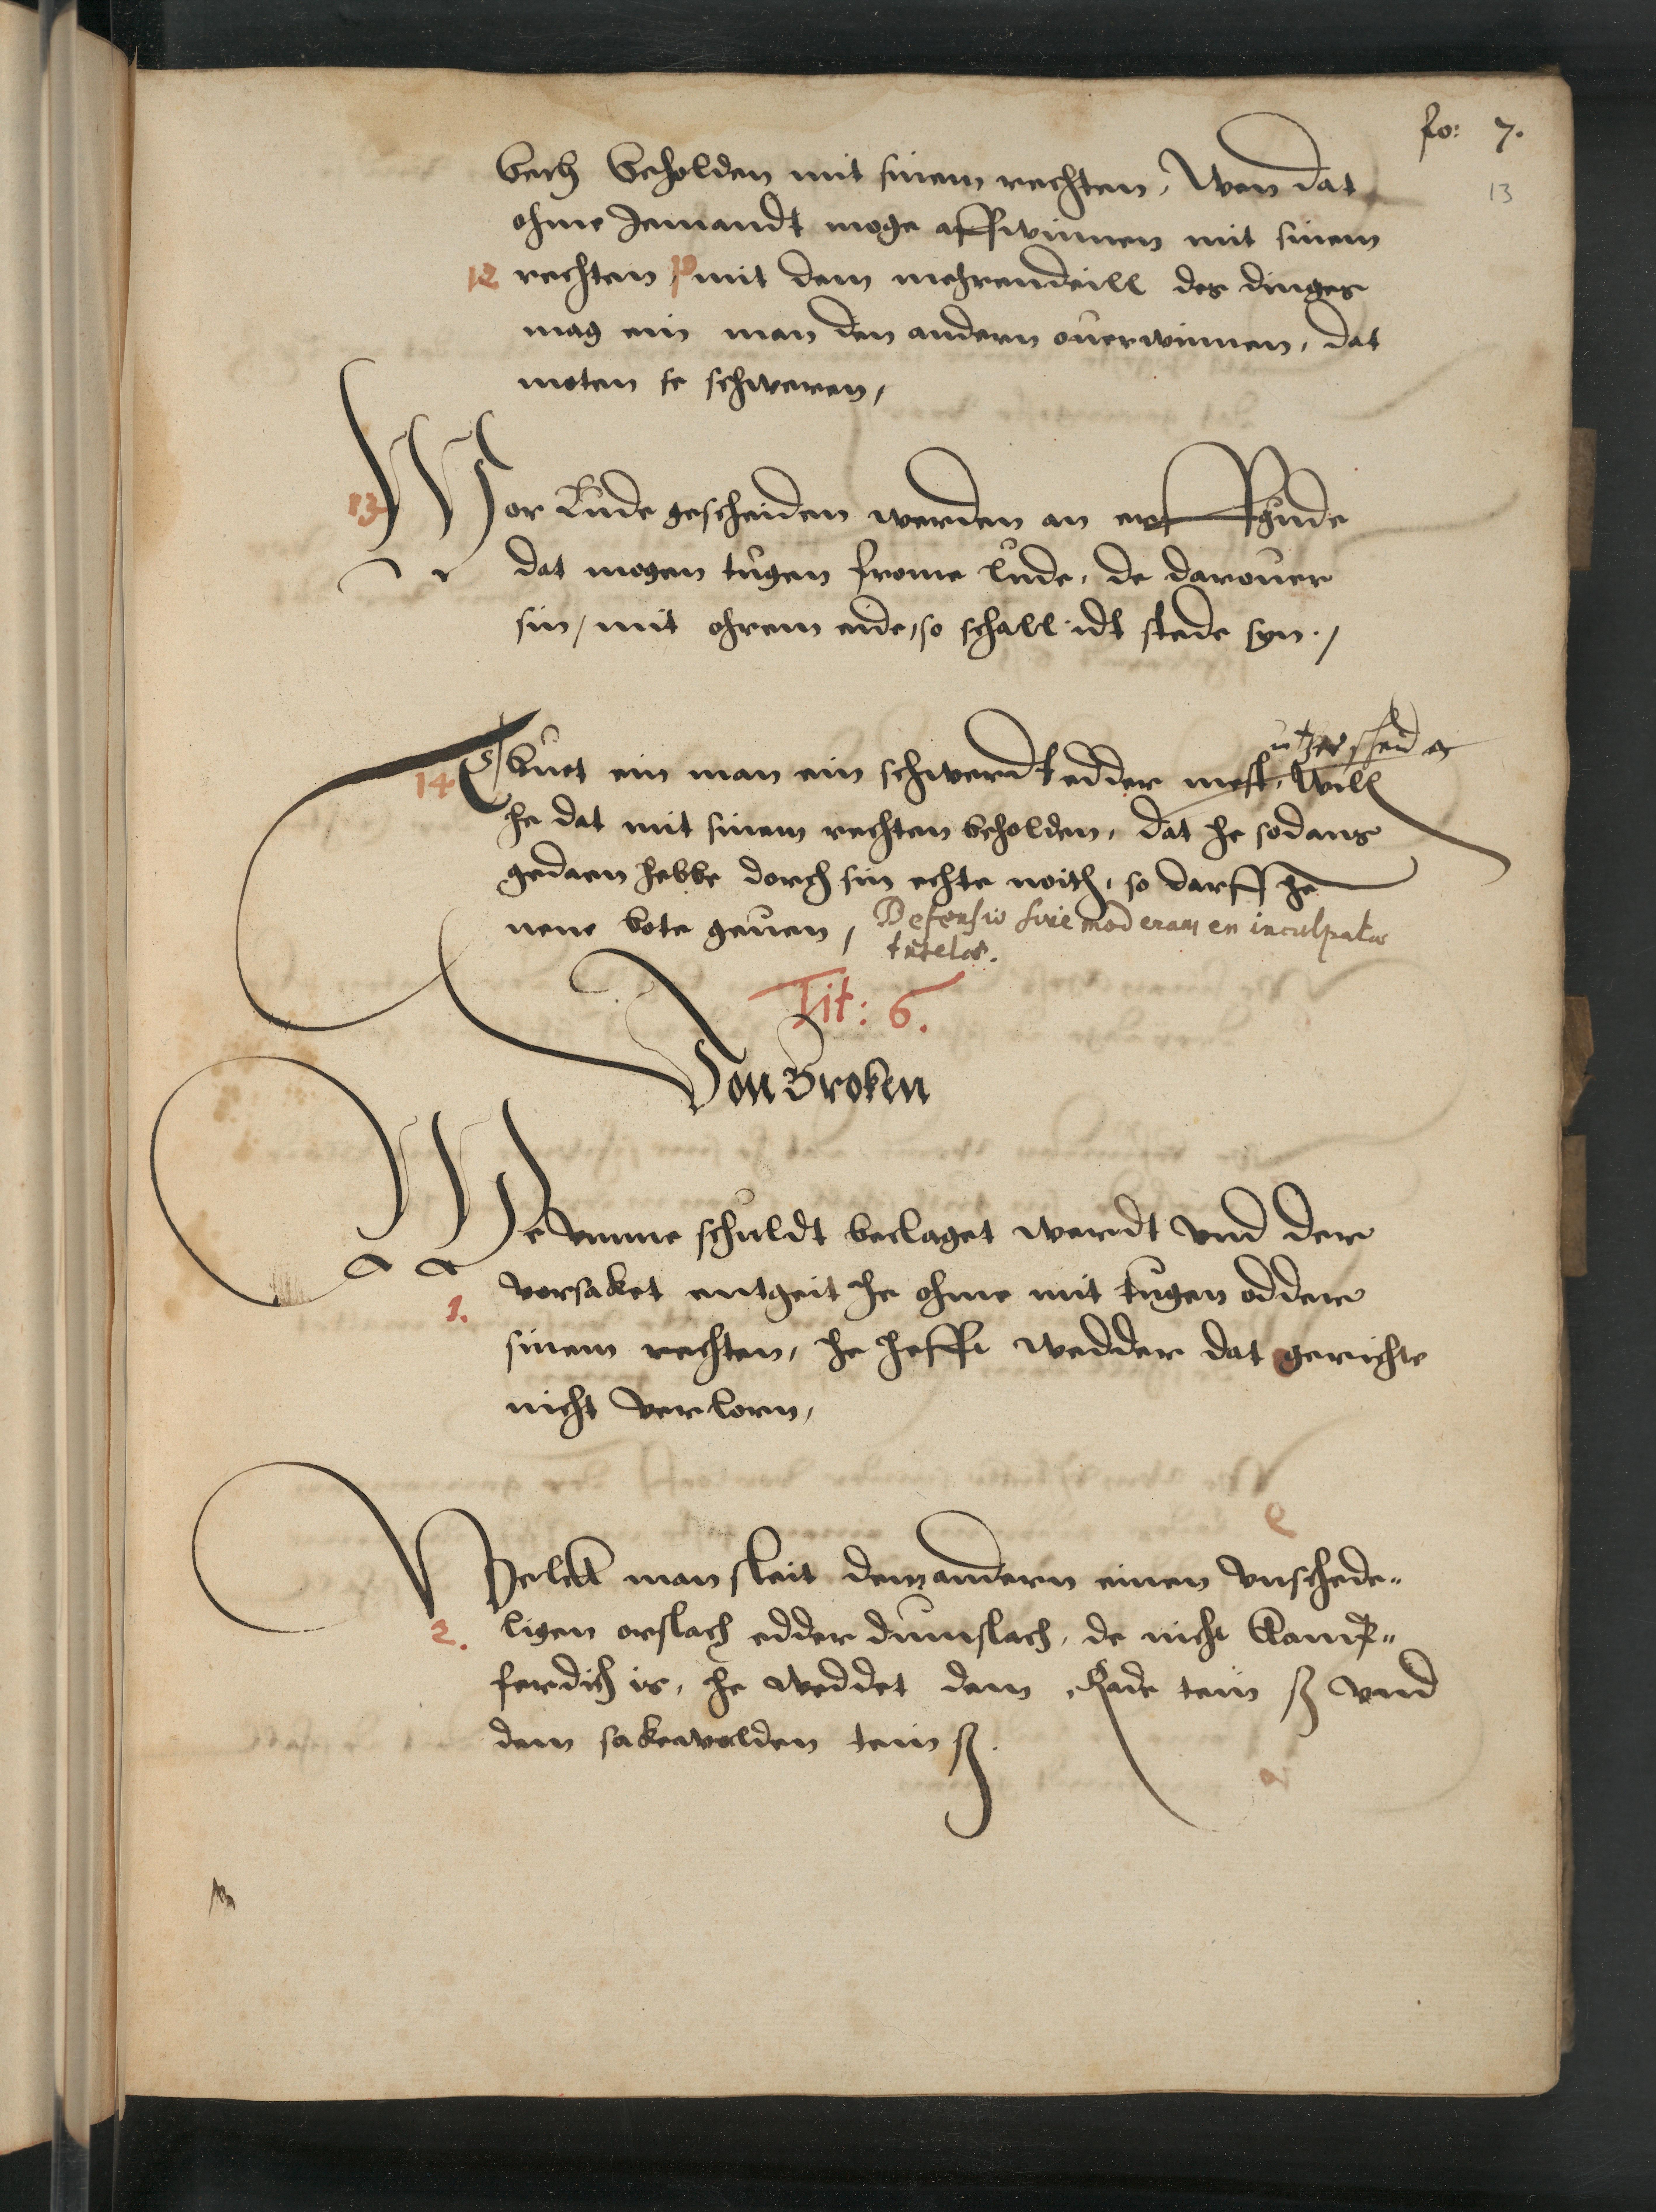 fo: 7.
13
bech beholden mit sinem rechten, Wen dat
ohme Jemandt moge affwinnen mit sinem
12 rechten mit dem mehrendeill des dinges
mag ein man den andern ouerwinnen, dat
moten se schweren,
13 Wor Lude gescheiden werden an erffgude
dat mogen tugen frome lude, de darouer
sin, mit ohrem eide, so schall idt stede syn.,
14 ein man ein schwerdt edder mest, Will
he dat mit sinem rechten beholden, dat he sodans
gedaen hebbe dorch sin echte noith, so darff he
nene bote geuen, Defensio sive moderamen inculpatae
tutelae.
Tit: 6.
Von Broken
We vmme schuldt beclaget werdt vnd der
1. vorsaket entgeit he ohme mit tugen oddere
sinem rechten, he hefft wedder dat gerichte
nicht verlorn,
Welck man sleit dem andern einen vnschede-
2. ligen orslach edder dunslach, de nicht kamp-
ferdich is, he weddet dem Rade tein ß vnd
dem sakewolden tein ß.